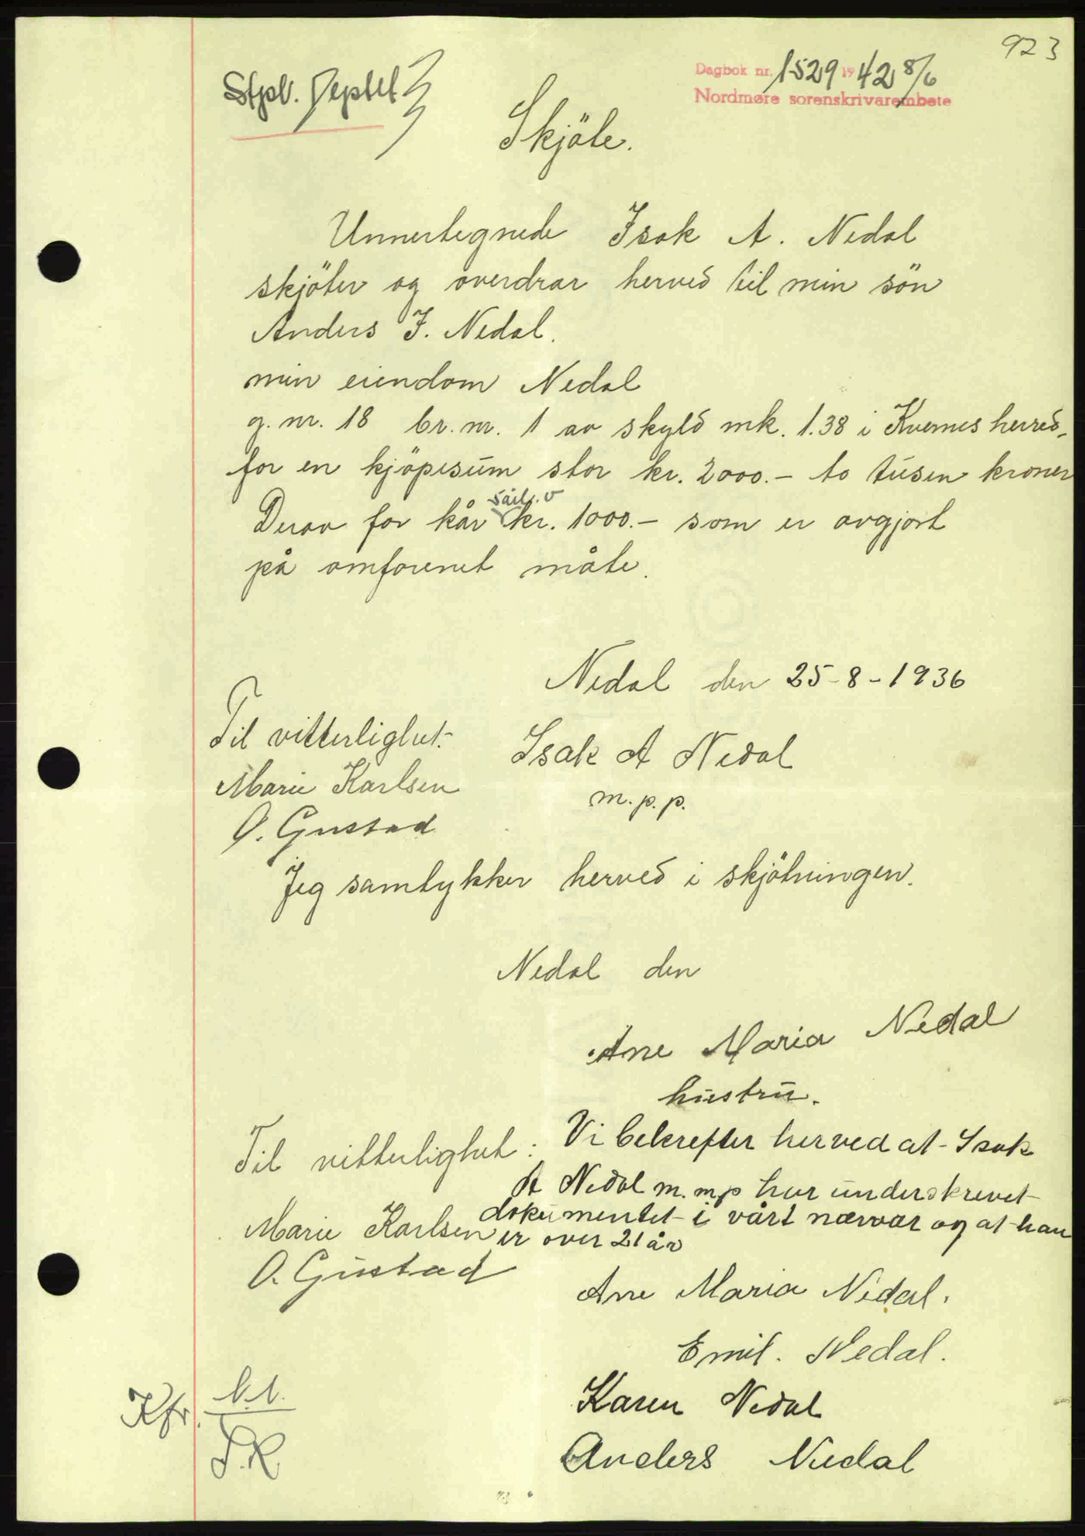 923
Dagbok nr. 1529 1942 8/6
Nordmøre sorenskrivarembete
Skjöte.
Unnertegnede Isak A. Nedal
skjöter og overdrar herved til min sön
Anders I. Nedal.
min eiendom Nedal
g. nr. 18 br. nr. 1 av skyld mk. 1.38 i Kvernes herred,
for en kjöpesum stor kr. 2000.- to tusen kroner
Derav for kår kr. 1000.- som er avgjort
på omforenet måte.
Nedal den 25-8-1936
Til vitterlighet:
Isak A Nedal
Marie Karlsen
m. p. p.
O. Gustad
Jeg samtykker herved i skjötningen.
Nedal den
Ane Maria Nedal
hustru.
Til vitterlighet:
Vi bekrefter herved at Isak
A Nedal m. m p har underskrevet
dokumentet i vårt nærvær og at han
er over 21 år
Marie Karlsen
O. Gustad
Ane Maria Nedal.
Emil. Nedal.
Karen Nedal
Anders Nedal
Kfr.